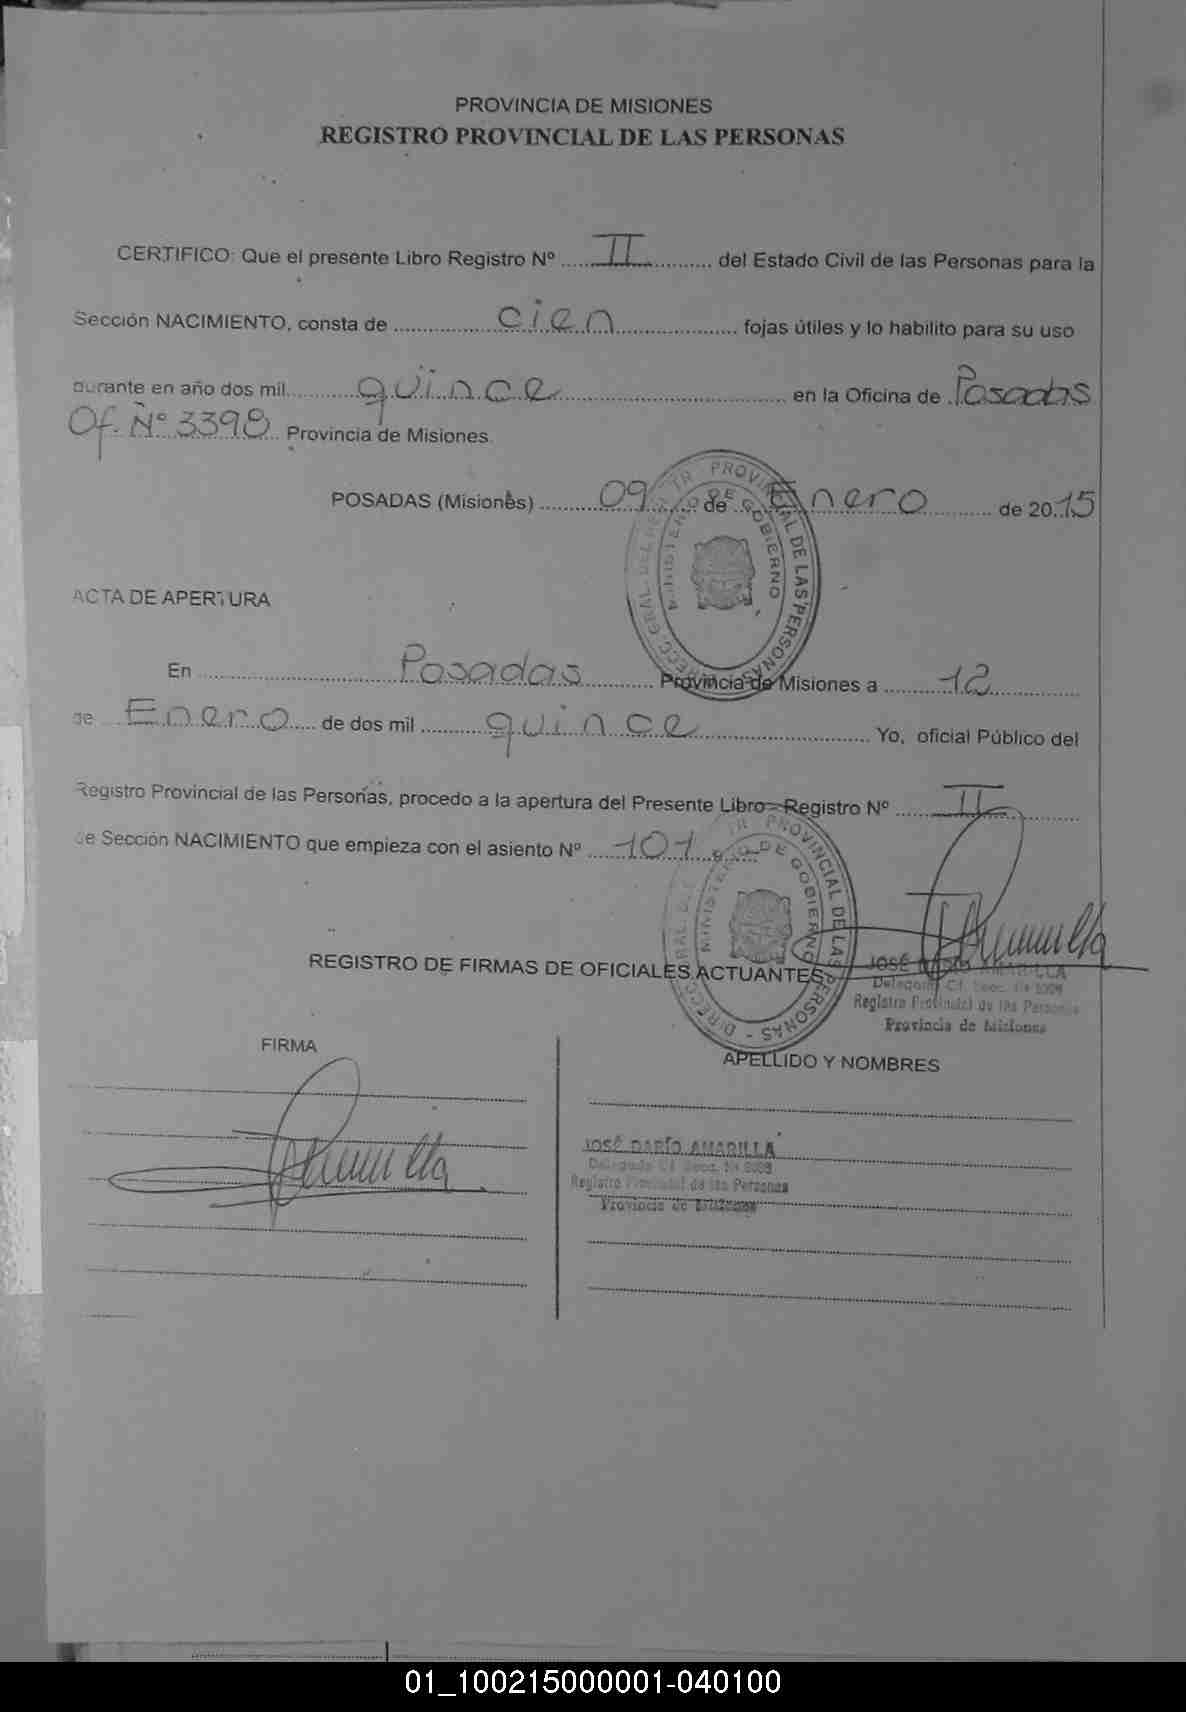 PROVINCIA DE MISIONES
REGISTRO PROVINCIAL DE LAS PERSONAS
CERTIFICO: Que el presente Libro Registro Nº II del Estado Civil de las Personas para la
Sección NACIMIENTO, consta de cien fojas útiles y lo habilito para su uso
durante en año dos mil quince en la Oficina de Posadas
Of. Nº 3398 Provincia de Misiones.
POSADAS (Misiones) 09 de Enero de 2015
ACTA DE APERTURA
En Posadas Provincia de Misiones a 12
de Enero de dos mil quince Yo, oficial Público del
Registro Provincial de las Personas, procedo a la apertura del Presente Libro- Registro Nº II
de Sección NACIMIENTO que empieza con el asiento Nº 101
REGISTRO DE FIRMAS DE OFICIALES ACTUANTES
JOSÉ AMARILLA
Registro Provincial de las Personas
Provincia de Misiones
FIRMA
APELLIDO Y NOMBRES
JOSÉ DARÍO AMARILLA
Registro Provincial de las Personas
Provincia de Misiones
DIRECC. GRAL. DEL REGISTR. PROVINCIAL DE LAS PERSONAS
MINISTERIO DE GOBIERNO
DIRECC. GRAL. DEL TR. PROVINCIAL DE LAS PERSONAS
MINISTERIO DE GOBIERNO
01_100215000001-040100